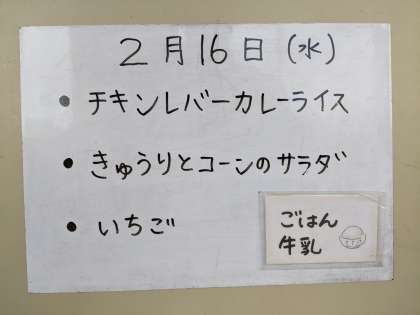 2月16日(水)
• チキンレバーカレーライス
• きゅうりとコーンのサラダ
• いちご
ごはん
牛乳